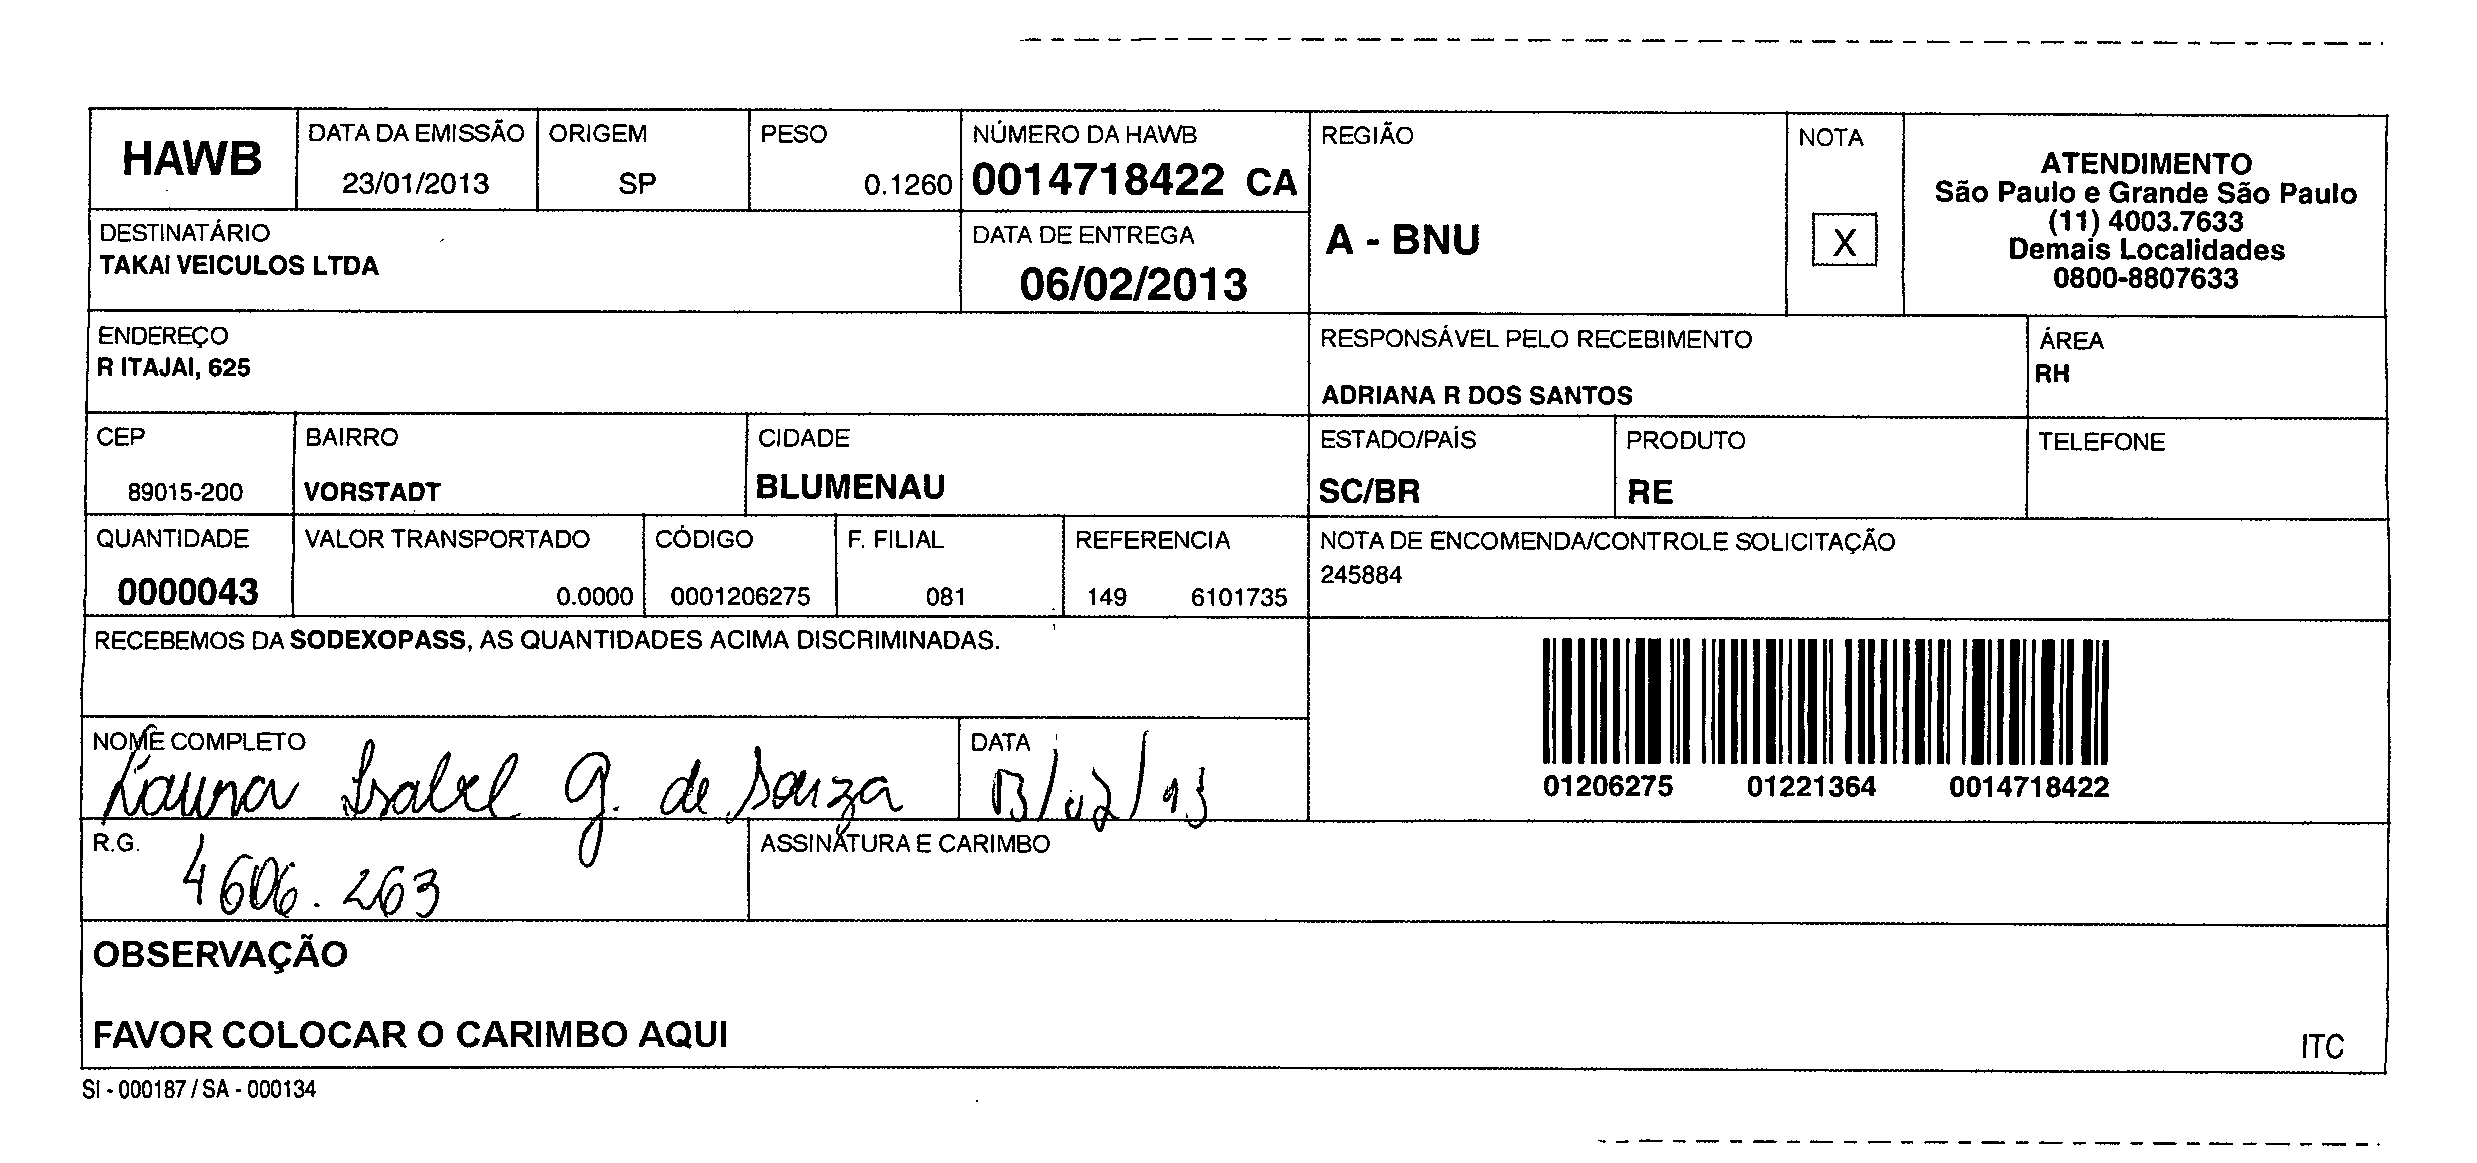 HAWB
DATA DA EMISSÃO
23/01/2013
ORIGEM
SP
PESO
0.1260
NÚMERO DA HAWB
0014718422 CA
REGIÃO
A - BNU
NOTA
X
ATENDIMENTO
São Paulo e Grande São Paulo
(11) 4003.7633
Demais Localidades
0800-8807633
DESTINATÁRIO
TAKAI VEICULOS LTDA
DATA DE ENTREGA
06/02/2013
ENDEREÇO
R ITAJAI, 625
RESPONSÁVEL PELO RECEBIMENTO
ADRIANA R DOS SANTOS
ÁREA
RH
CEP
89015-200
BAIRRO
VORSTADT
CIDADE
BLUMENAU
ESTADO/PAÍS
SC/BR
PRODUTO
RE
TELEFONE
QUANTIDADE
0000043
VALOR TRANSPORTADO
0.0000
CÓDIGO
0001206275
F. FILIAL
081
REFERENCIA
149 6101735
NOTA DE ENCOMENDA/CONTROLE SOLICITAÇÃO
245884
RECEBEMOS DA SODEXOPASS, AS QUANTIDADES ACIMA DISCRIMINADAS.
01206275 01221364 0014718422
NOME COMPLETO
Isabel G. de Souza
DATA
13/02/13
R.G.
4606.263
ASSINATURA E CARIMBO
OBSERVAÇÃO
FAVOR COLOCAR O CARIMBO AQUI
ITC
SI - 000187 / SA - 000134